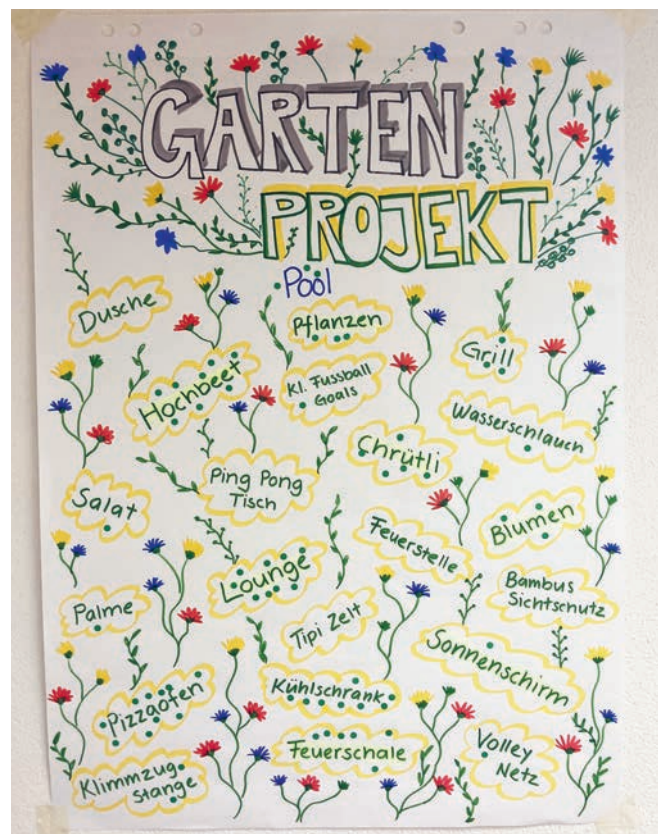 GARTEN
PROJEKT
Pool
Dusche
Pflanzen
Grill
Hochbeet
Kl. Fussball
Goals
Wasserschlauch
Chrütli
Ping Pong
Tisch
Salat
Blumen
Feuerstelle
Lounge
Bambus
Sichtschutz
Palme
Tipi Zelt
Sonnenschirm
Pizzaofen
Kühlschrank
Feuerschale
Volley
Netz
Klimmzug-
stange